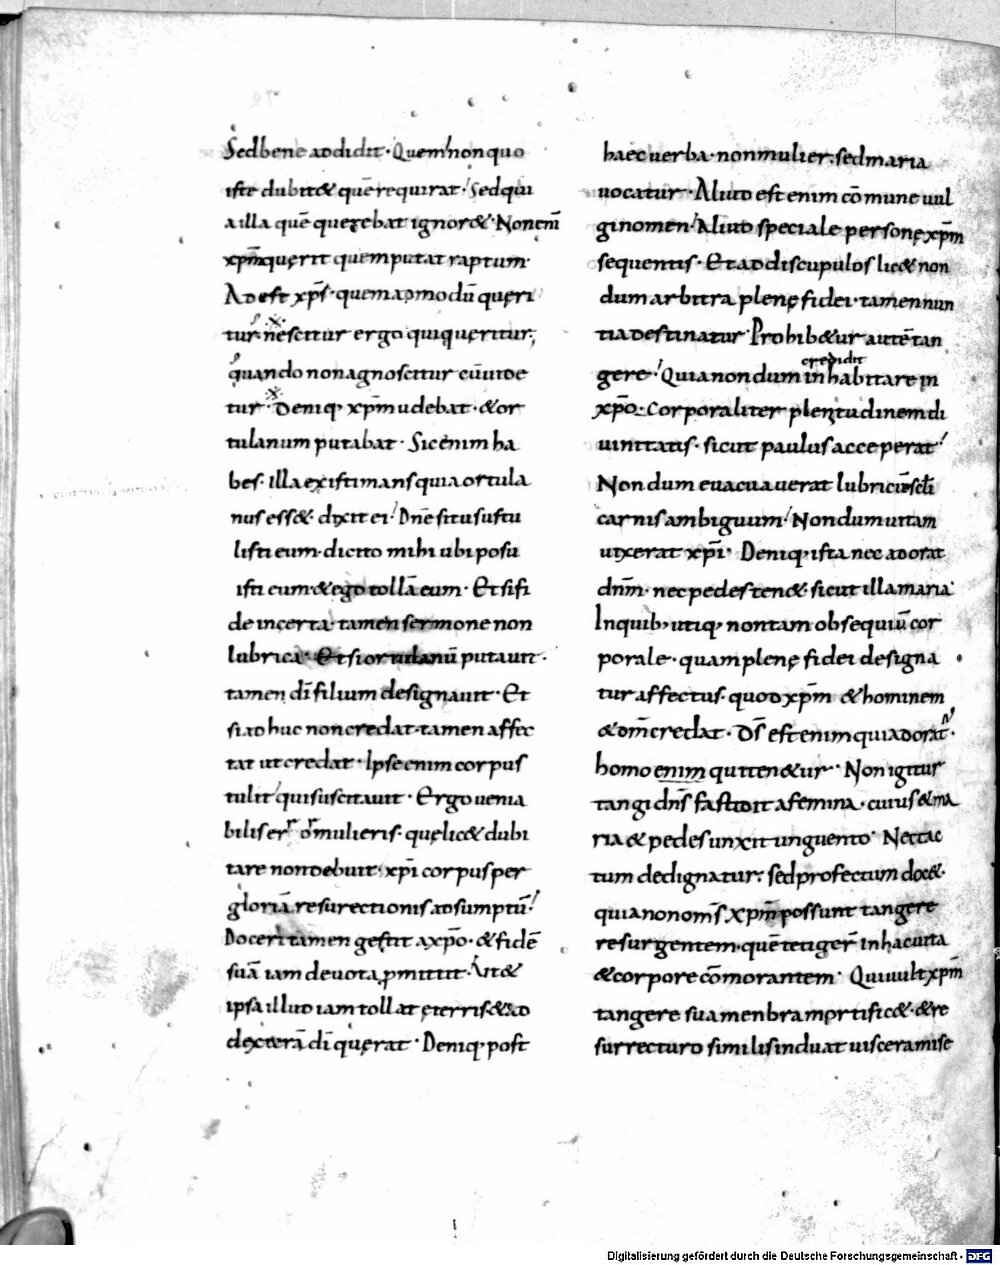 Sed bene addidit · Quem non quo
iste dubitet quē requirat · Sed qui
a illa quē querebat ignoret · Non enī
xp̄m querit quem putat raptum ·
Adest xp̄s · quemadmodū quęri
tur · nescitur ergo qui queritur ;
quando non agnoscitur cū uide
tur · Deniq; xp̄m uidebat · & or
tulanum putabat · Sic enim ha
bes · illa existimans quia ortula
nus esset · dixit ei · Dn̄e si tu sustu
listi eum · dicito mihi ubi posu
isti eum · & ego tollā eum · Et si fi
de incerta · tamen sermone non
lubrica · Et si ortulanū putauit ·
tamen dī filium designauit · Et
si adhuc non credat · tamen affec
tat ut credat · Ipse enim corpus
tulit qui suscitauit · Ergo uenia
bilis error mulieris · quę licet dubi
tare non debuit · xp̄i corpus per
gloriā resurectionis adsumptū ·
Doceri tamen gestit a xp̄o · & fidē
suā iam deuota promittit · Ait &
ipsa illud iam tollat ęterris · & ad
dexterā dī quęrat · Deniq; post
haec uerba · non mulier · sed maria
uocatur · Aliud est enim cōmune uul
gi nomen · Aliud speciale personę xp̄m
sequentis · Et ad discipulos licet non
dum arbitra plenę fidei · tamen nun
tia destinatur · Prohibetur autē tan
gere · Quia nondum credidit inhabitare in
xp̄o · corporaliter plenitudinem di
uinitatis · sicut paulus acceperat ·
Nondum euacuauerat lubricū scli
carnis ambiguum · Nondum uitam
uixerat xp̄i · Deniq; ista nec adorat
dn̄m · nec pedes tenet · sicut illa maria ·
In quib; utiq; non tam obsequiū cor
porale · quam plenę fidei designa
tur affectus · quod xp̄m & hominem
& dm̄ credat · Ds̄ est enim quia adorat ·
homo enim qui tenetur · Non igitur
tangi dn̄s fastidit a femina · cuius & ma
ria & pedes unxit unguento · Nec tac
tum dedignatur · sed profectum docet ·
quia non om̄s xp̄m possunt tangere
resurgentem · quē tetiger̄ in hac uita
& corpore cōmorantem · Qui uult xp̄m
tangere sua menbra mortificet · & re
surrecturo similis induat uiscera mise
Digitalisierung gefördert durch die Deutsche Forschungsgemeinschaft - DFG